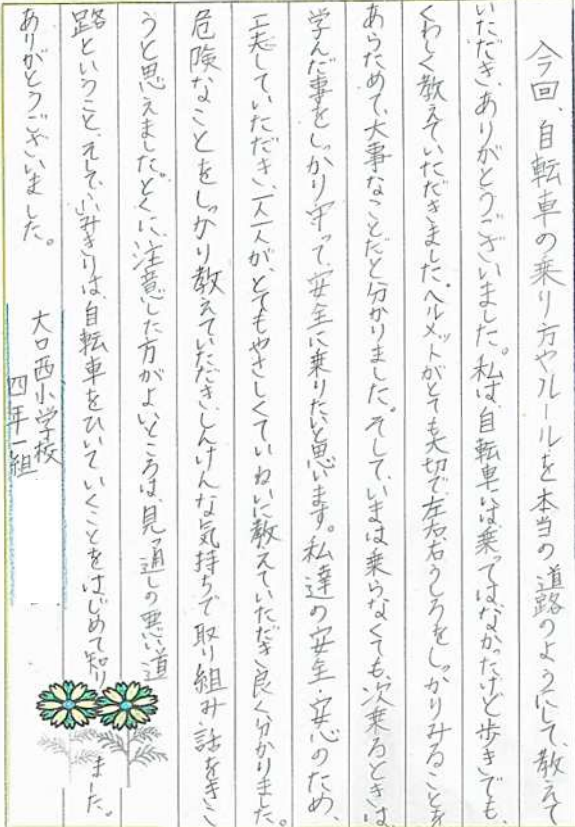 今回、自転車の乗り方やルールを本当の道路のようにして、教えて
いただき、ありがとうございました。私は、自転車には乗ってはなかったけど歩きでも、
くわしく教えていただきました。ヘルメットがとても大切で左右右うしろをしっかりみることを
あらためて、大事なことだと分かりました。そして、いまは乗らなくても、次乗るときは、
学んだ事をしっかり守って、安全に乗りたいと思います。私達の安全・安心のため、
工夫していただき、一人一人が、とてもやさしくていねいに教えていただき良く分かりました。
危険なことをしっかり教えていただき、しんけんな気持ちで取り組み、話をきこ
うと思えました。とくに、注意した方がよいところは、見通しの悪い道
路ということ、そして、ふみきりは、自転車をひいていくことをはじめて知りました。
ありがとうございました。
大口西小学校
四年一組